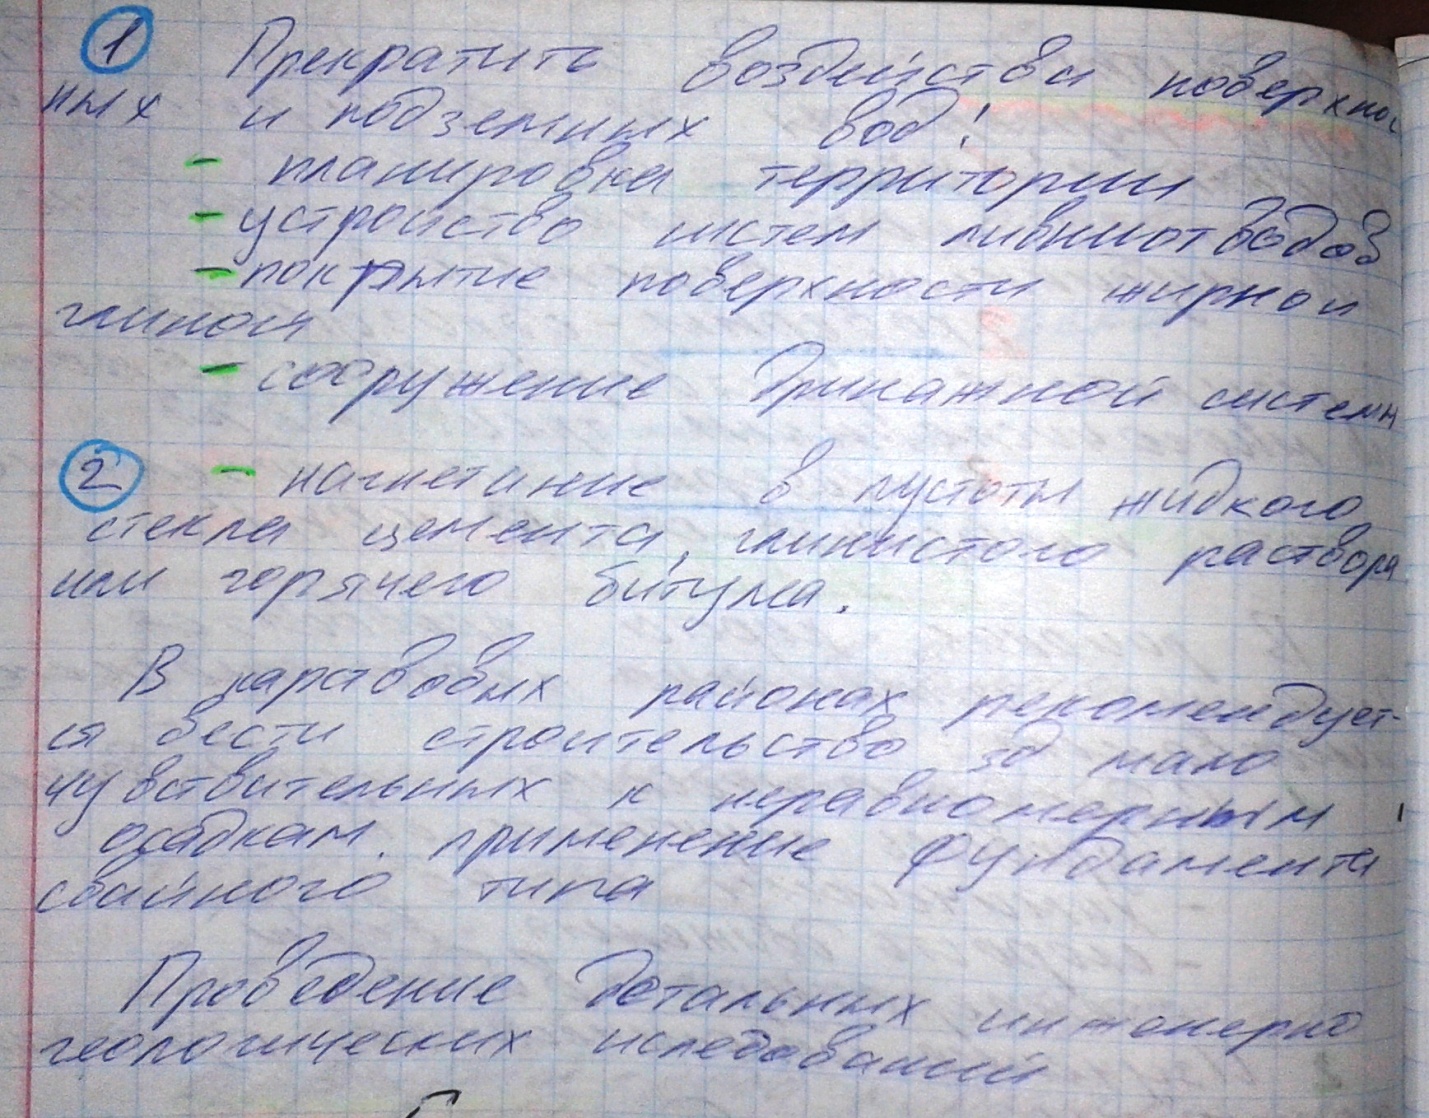 1 Прекратить воздействи поверхнос
ных и подземных вод:
- планировка территории
- устройство систем ливниотводов
- покрытие поверхности жирной
глиной
- сооружение дринажной системы
2 - нагнетание в пустоты жидкого
стекла цемента, глинистого раствора
или горячего битума.
В карстовых районах рекомендует-
ся вести строительство зд мало
чувствительных к неравномерным
осадкам. применение фундамента
свайного типа
Проведение детальных инженерно
геологических иследований